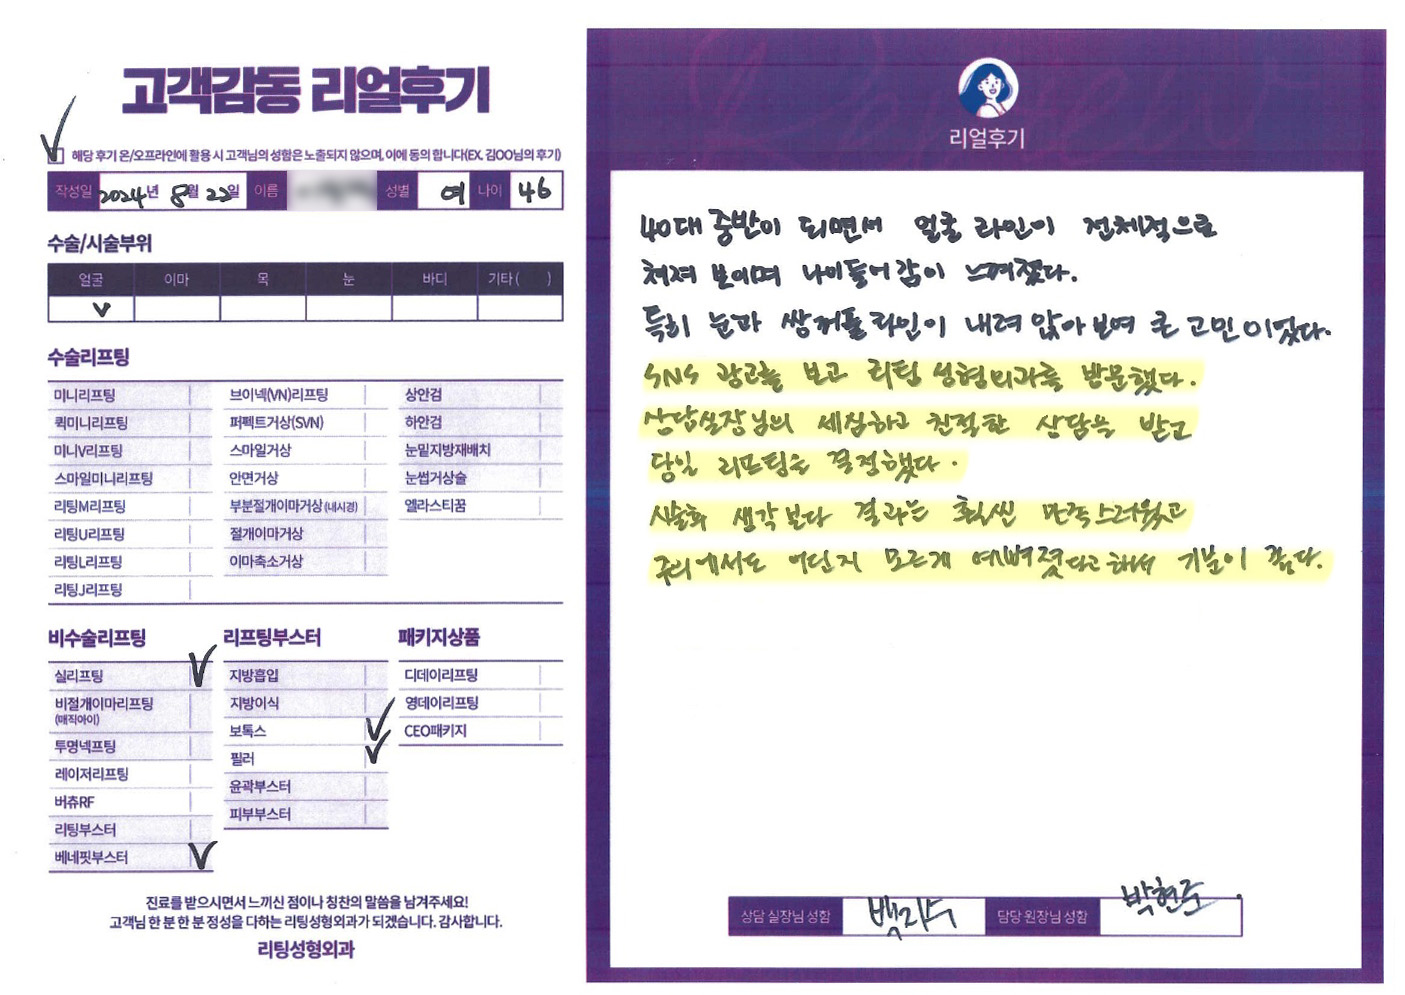 고객감동 리얼후기
해당 후기 온/오프라인에 활용 시 고객님의 성함은 노출되지 않으며, 이에 동의 합니다(EX. 김OO님의 후기)
작성일 2024년 8월 22일 이름 성별 여 나이 46
수술/시술부위
얼굴 이마 목 눈 바디 기타( )
수술리프팅
미니리프팅 브이넥(VN)리프팅 상안검
퀵미니리프팅 퍼펙트거상(SVN) 하안검
미니V리프팅 스마일거상 눈밑지방재배치
스마일미니리프팅 안면거상 눈썹거상술
리팅M리프팅 부분절개이마거상 (내시경) 엘라스티꿈
리팅U리프팅 절개이마거상
리팅L리프팅 이마축소거상
리팅J리프팅
비수술리프팅 리프팅부스터 패키지상품
실리프팅 지방흡입 디데이리프팅
비절개이마리프팅 지방이식 영데이리프팅
(매직아이) 보톡스 CEO패키지
투명넥프팅 필러
레이저리프팅 윤곽부스터
버츄RF 피부부스터
리팅부스터
베네핏부스터
진료를 받으시면서 느끼신 점이나 칭찬의 말씀을 남겨주세요!
고객님 한 분 한 분 정성을 다하는 리팅성형외과가 되겠습니다. 감사합니다.
리팅성형외과
리얼후기
40대 중반이 되면서 얼굴 라인이 전체적으로
처져 보이며 나이들어감이 느껴졌다.
특히 눈과 쌍꺼풀라인이 내려 앉아 보여 큰 고민이었다.
SNS 광고를 보고 리팅 성형외과를 방문했다.
상담실장님의 세심하고 친절한 상담을 받고
당일 리프팅을 결정했다.
시술후 생각보다 결과는 훨씬 만족스러웠고
주위에서도 어딘지 모르게 예뻐졌다고해서 기분이 좋다.
상담 실장님 성함 백지수 담당 원장님 성함 박현준